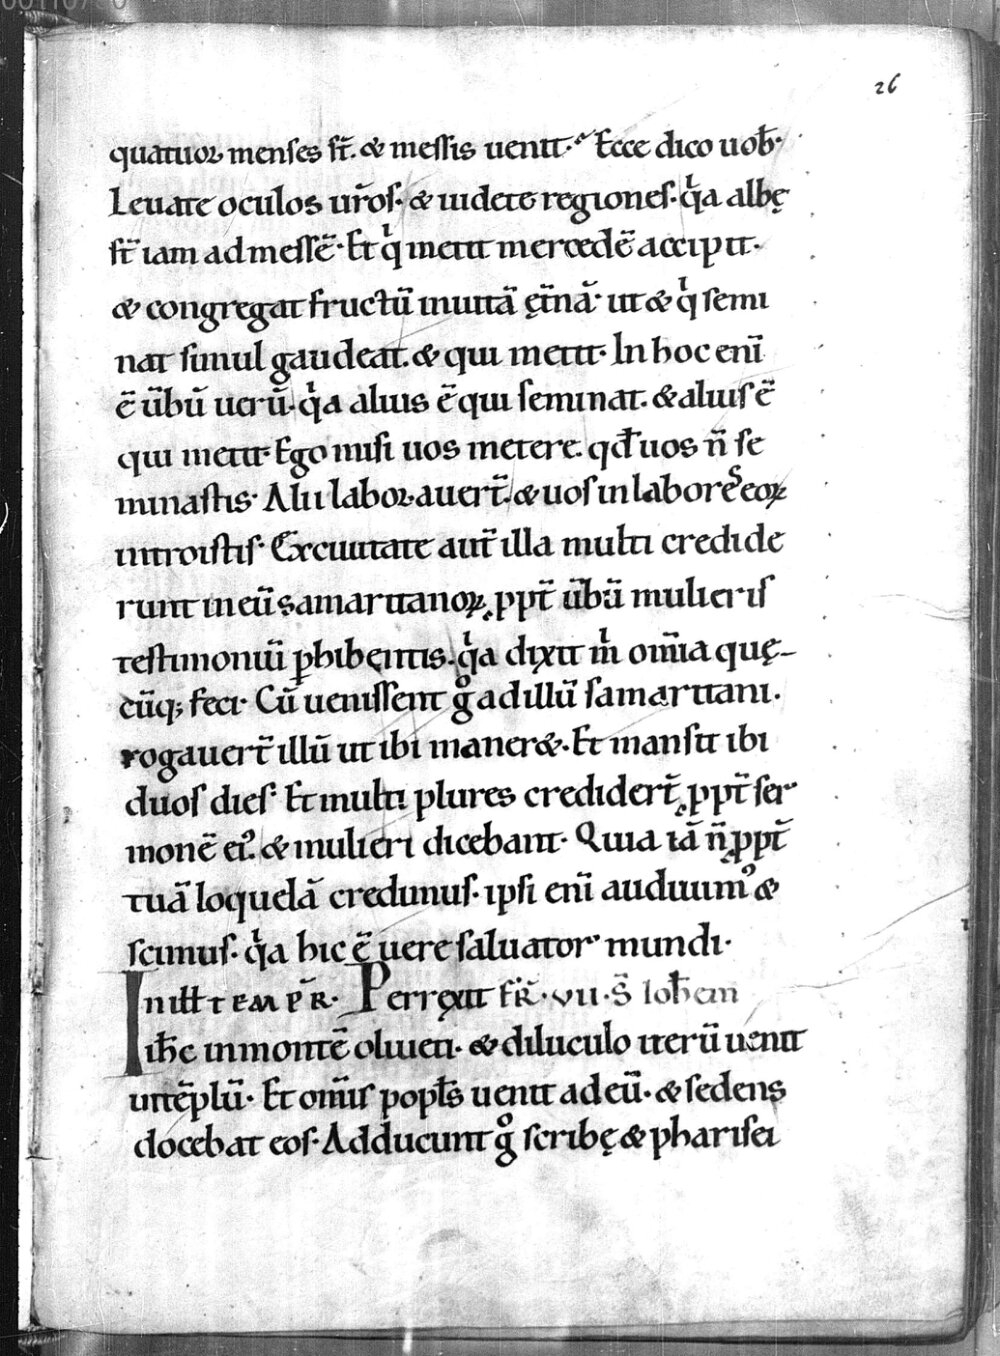 26
quatuor menses st̅. & messis uenit. Ecce dico uob̅.
Leuate oculos ur̅os. & uidete regiones. qͥa albę
st̅ iam ad messe̅. Et qͥ metit mercede̅ accipit.
& congregat fructu̅ in uita̅ ęt̅na̅. ut & qͥ semi
nat simul gaudeat. & qui metit. In hoc eni̅
e̅ u̅bu̅ ueru̅. qͥa alius e̅ qui seminat. & alius e̅
qui metit. Ego misi uos metere. qd̅ uos n̅ se
minastis. Alii laborauert̅. & uos in labores eoꝝ
introistis. Ex ciuitate aut̅ illa multi credide
runt in eu̅ samaritanoꝝ. ppt̅ u̅bu̅ mulieris
testimoniu̅ ꝑhibęntis. qͥa dixit mͥ om̅ia quę
cu̅q; feci. Cu̅ uenissent gͦ ad illu̅ samaritani.
rogauert̅ illu̅ ut ibi maner&. Et mansit ibi
duos dies. Et multi plures credidert̅. ppt̅ ser
mone̅ ei᾿. & mulieri dicebant. Quia ia̅ n̅ ppt̅
tua̅ loquela̅ credimus. ipsi eni̅ audiuim᾿ &
scimus. qͥa hic e̅ uere saluator mundi.
In ill̅ tem p̅r. Perrexit FR̅. VII. S̅ Ioh̅em
ih̅c in monte̅ oliueti. & diluculo iteru̅ uenit
in te̅plu̅. Et om̅is popl̅s uenit ad eu̅. & sedens
docebat eos. Adducunt gͦ scribę & pharisei